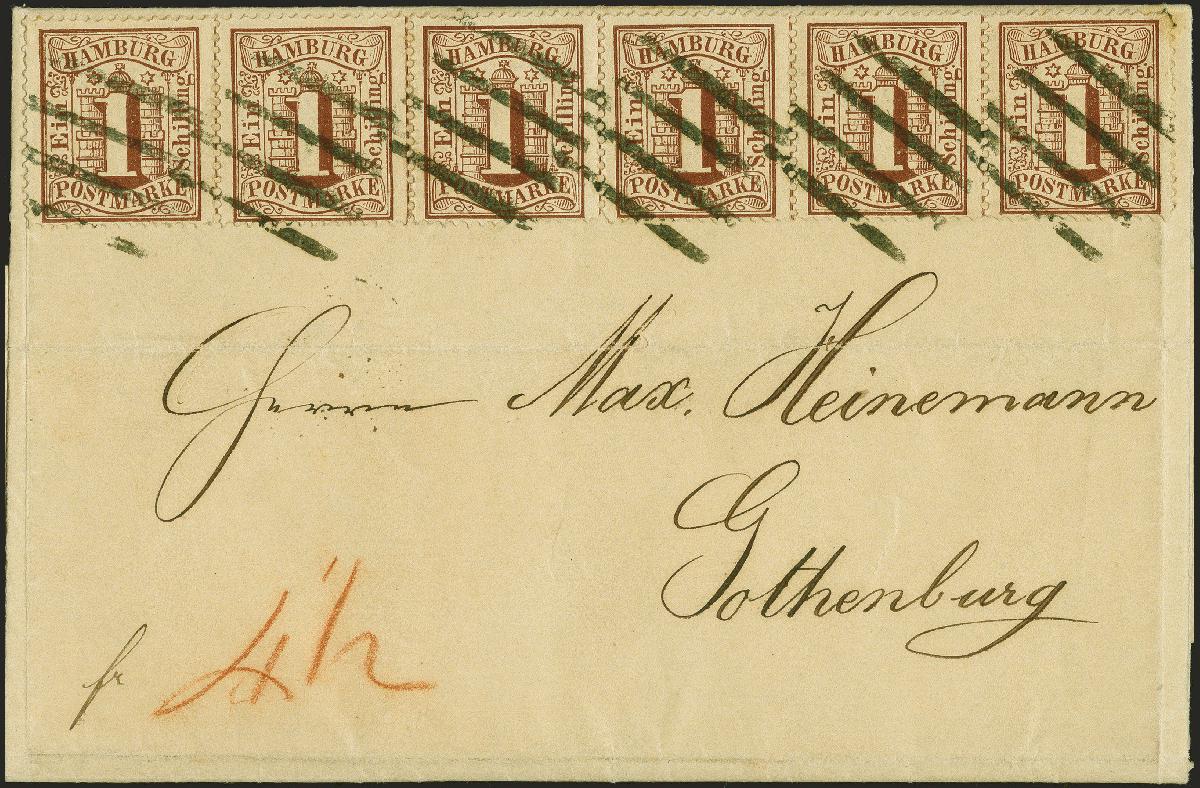 HAMBURG HAMBURG HAMBURG HAMBURG HAMBURG HAMBURG
Ein 1 Schilling Ein 1 Schilling Ein 1 Schilling Ein 1 Schilling Ein 1 Schilling Ein 1 Schilling
POSTMARKE POSTMARKE POSTMARKE POSTMARKE POSTMARKE POSTMARKE
Herrn Max. Heinemann
Gothenburg
fr 4 1/2